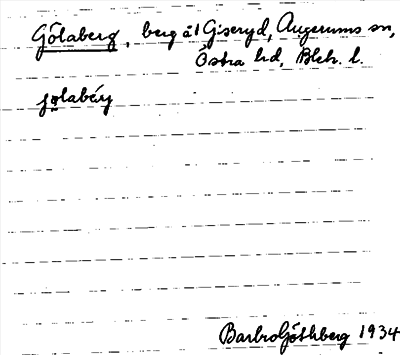 Gölaberg, berg åt Giseryd, Augerums sn,
Östra hd, Blek. l.
jolabáy
Barbro Göthberg 1934